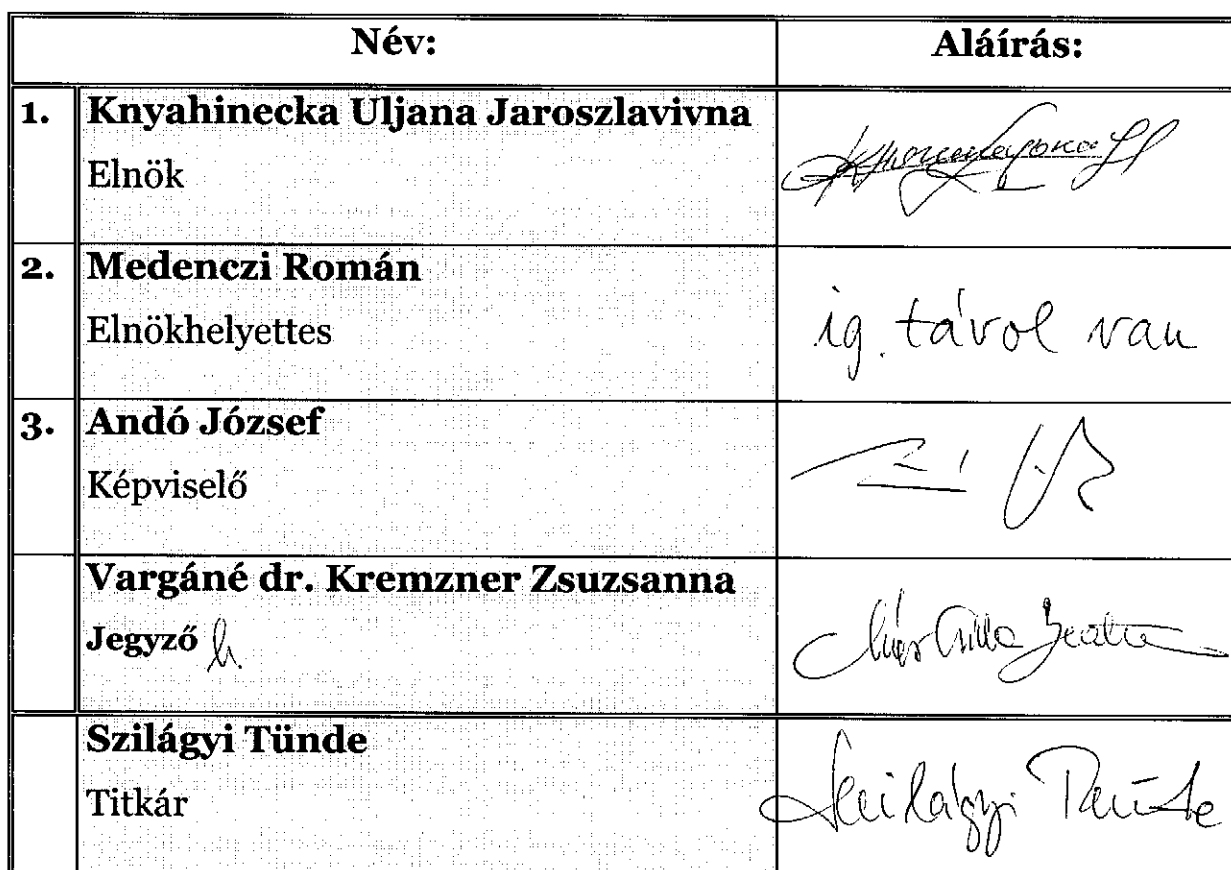 Név: Aláírás:
1. Knyahinecka Uljana Jaroszlavivna
Elnök
2. Medenczi Román
Elnökhelyettes ig. távol van
3. Andó József
Képviselő
Vargáné dr. Kremzner Zsuzsanna
Jegyző h.
Szilágyi Tünde
Titkár Szilágyi Tünde